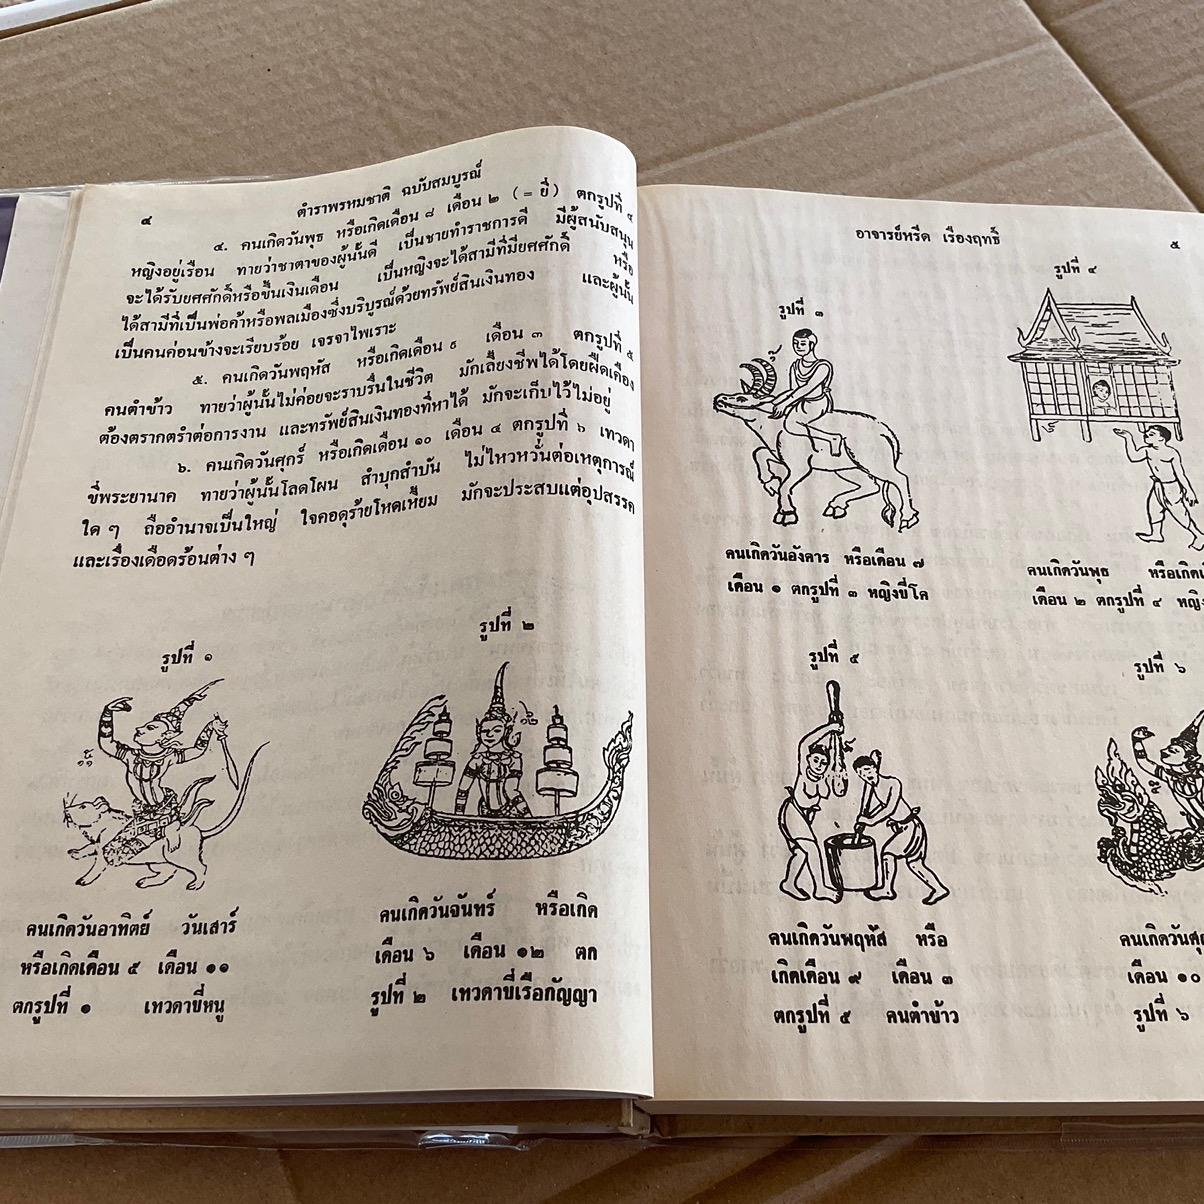 ๔
ตำราพรหมชาติ ฉบับสมบูรณ์
๔. คนเกิดวันพุธ หรือเกิดเดือน ๘ เดือน ๒ (= ยี่) ตกรูปที่ ๔
หญิงอยู่เรือน ทายว่าชาตาของผู้นั้นดี เป็นชายทำราชการดี มีผู้สนับสนุน
จะได้รับยศศักดิ์หรือขึ้นเงินเดือน เป็นหญิงจะได้สามีที่มียศศักดิ์ หรือ
ได้สามีที่เป็นพ่อค้าหรือพลเมืองซึ่งบริบูรณ์ด้วยทรัพย์สินเงินทอง และผู้นั้น
เป็นคนค่อนข้างจะเรียบร้อย เจรจาไพเราะ
๕. คนเกิดวันพฤหัส หรือเกิดเดือน ๙ เดือน ๓ ตกรูปที่ ๕
คนตำข้าว ทายว่าผู้นั้นไม่ค่อยจะราบรื่นในชีวิต มักเลี้ยงชีพได้โดยฝืดเคือง
ต้องตรากตรำต่อการงาน และทรัพย์สินเงินทองที่หาได้ มักจะเก็บไว้ไม่อยู่
๖. คนเกิดวันศุกร์ หรือเกิดเดือน ๑๐ เดือน ๔ ตกรูปที่ ๖ เทวดา
ขี่พระยานาค ทายว่าผู้นั้นโลดโผน สำบุกสำบัน ไม่ไหวหวั่นต่อเหตุการณ์
ใด ๆ ถืออำนาจเป็นใหญ่ ใจคอดุร้ายโหดเหี้ยม มักจะประสบแต่อุปสรรค
และเรื่องเดือดร้อนต่าง ๆ
รูปที่ ๑
คนเกิดวันอาทิตย์ วันเสาร์
หรือเกิดเดือน ๕ เดือน ๑๑
ตกรูปที่ ๑ เทวดาขี่หนู
รูปที่ ๒
คนเกิดวันจันทร์ หรือเกิด
เดือน ๖ เดือน ๑๒ ตก
รูปที่ ๒ เทวดาขี่เรือกัญญา
อาจารย์หรีด เรืองฤทธิ์
๕
รูปที่ ๓
คนเกิดวันอังคาร หรือเดือน ๗
เดือน ๑ ตกรูปที่ ๓ หญิงขี่โค
รูปที่ ๔
คนเกิดวันพุธ หรือเกิดเ
เดือน ๒ ตกรูปที่ ๔ หญิ
รูปที่ ๕
คนเกิดวันพฤหัส หรือ
เกิดเดือน ๙ เดือน ๓
ตกรูปที่ ๕ คนตำข้าว
รูปที่ ๖
คนเกิดวันศุ
เดือน ๑๐
รูปที่ ๖